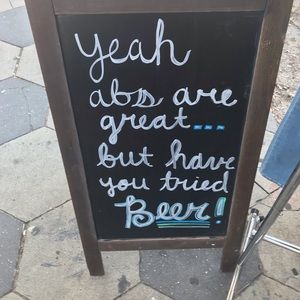 yeah
abs are
great...
but have
you tried
Beer!